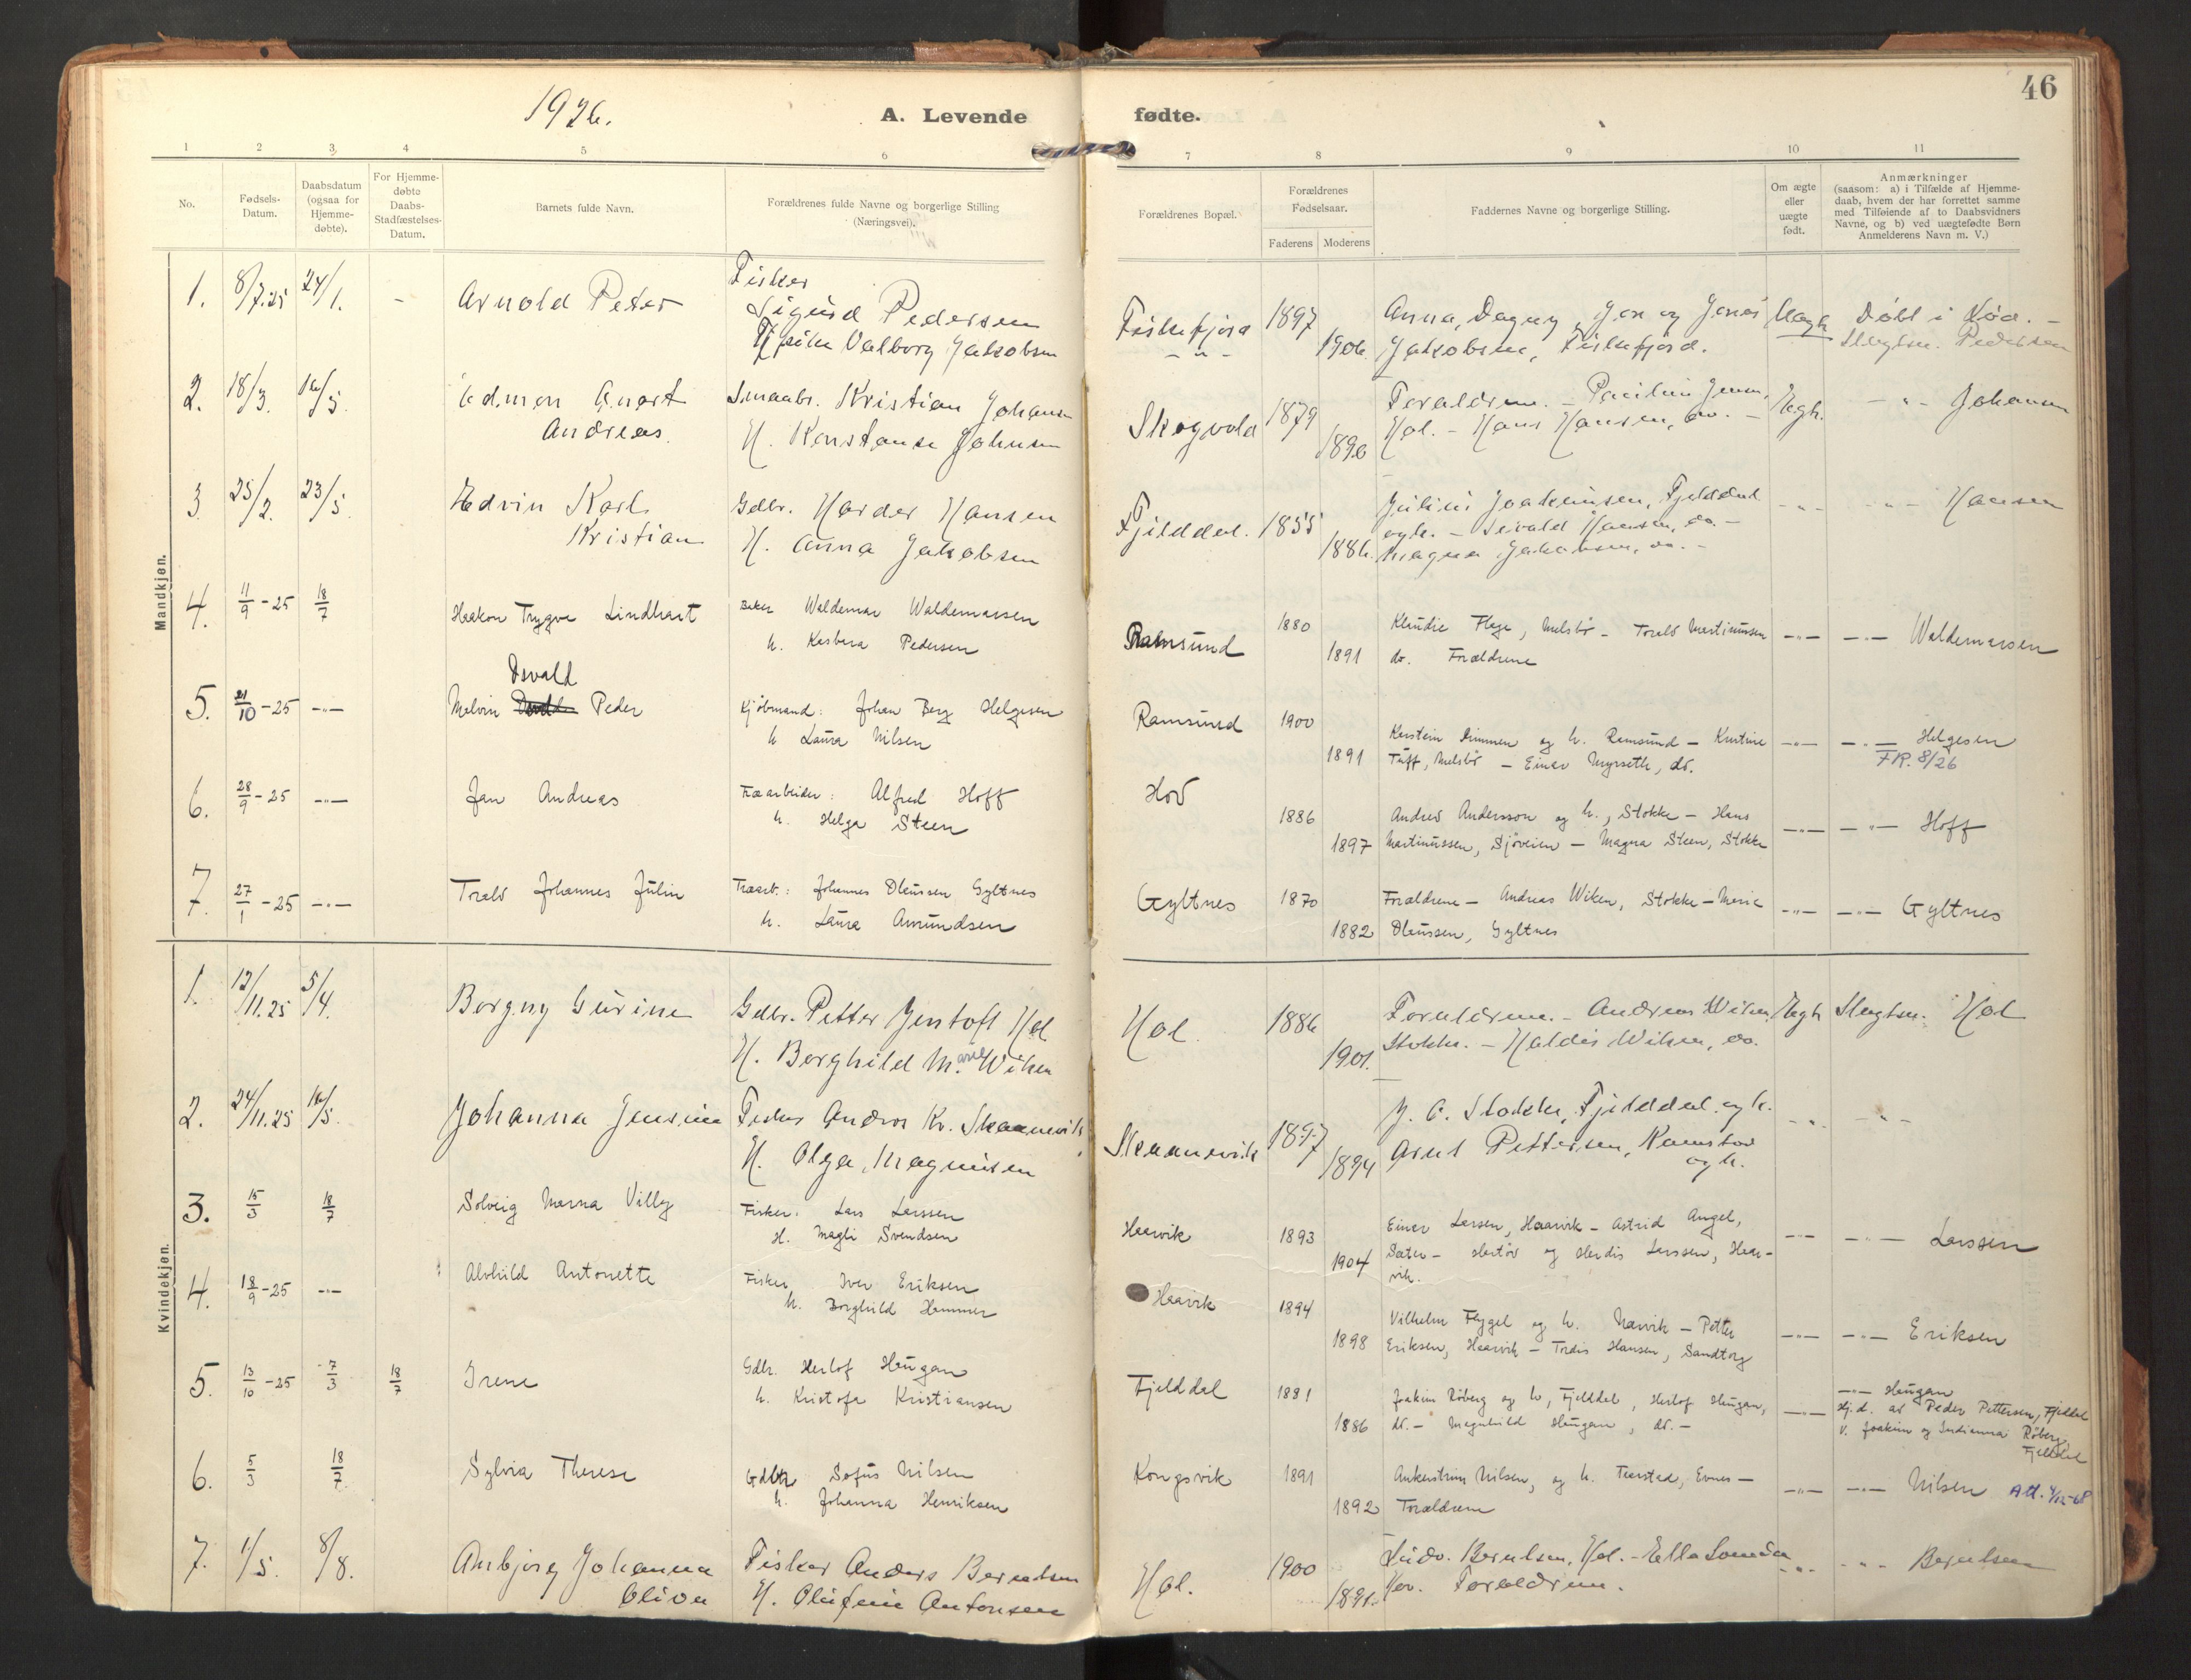 46
1926.
A. Levende fødte.
1 2 3 4 5 6 7 8 9 10 11
No.
Fødsels-
Datum.
Daabsdatum
(ogsaa for
Hjemme-
døbte).
For Hjemme-
døbte
Daabs-
Stadfæstelses-
Datum.
Barnets fulde Navn.
Forældrenes fulde Navne og borgerlige Stilling
(Næringsvei).
Forældrenes Bopæl.
Forældrenes
Fødselsaar.
Faderens Moderens
Faddernes Navne og borgerlige Stilling.
Om ægte
eller
uægte
født.
Anmærkninger
(saasom: a) i Tilfælde af Hjemme-
daab, hvem der har forrettet samme
med Tilføiende af to Daabsvidners
Navne, og b) ved uægtefødte Børn
Anmelderens Navn m. V.)
Mandkjøn.
1. 8/7.25 24/1. - Arnold Peter
Fisker
Sigurd Pedersen
Valborg Jakobsen
Fiskefjord 1897
-"- 1906
Anna, Dagny, Jen og Jens
Jakobsen, Fiskefjord.
Uægt.
Døbt i
Pedersen
2. 18/3. 16/5. Edmon
Andreas.
Smaabr. Kristian Johansen
H. Konstanse Johnsen
Skogvold 1879
1896
Forældrene. - Jensen,
Hol. - Hans Hansen, do. -
Ægt.
-"- Johansen
3. 25/2. 23/5. Edvin Karl
Kristian
Gdbr. Harder Hansen
H. Anna Jakobsen
Fjelddal. 1885
1886.
Julius Joakimsen, Fjelddal
og h. - Sivald Hansen, do. -
Magna Jakobsen, do. -
-"- -"- Hansen
4. 11/9-25 18/7 Haakon Trygve Lindhart
Baker Waldemar Waldemarsen
h. Kasbera Pedersen
Ramsund 1880
1891
Klaudie Hege, Melsbø - Torald Martinussen
do. Forældrene
-"- -"- Waldemarsen
5. 21/10-25 -"- Melvin Osvald Peder
Kjøbmand: Johan Berg Helgesen
h Laura Nilsen
Ramsund 1900
1891
Karstein Dimmen og h. Ramsund - Kristine
Tuff, Melsbø - Einar Myrseth, do.
-"- -"- Helgesen
FR. 8/26
6. 28/9-25 -"- Jan Andreas
Træarbeider: Alfred Hoff
h. Helga Steen
Hov
1886
1897
Andrev Andersson og h., Stokke - Hans
Martinussen, Sjøveien - Magna Steen, Stokke
-"- -"- Hoff
7. 27/1-25 -"- Toralv Johannes Julin
Træarb.: Johannes Olaussen Gyltnes
h. Laura Amundsen
Gyltnes 1870
1882
Forældrene - Andreas Wiken, Stokke - Marie
Olaussen, Gyltnes
-"- -"- Gyltnes
Kvindekjøn.
1. 12/11.25 5/4. Borgny Gurine
Gdbr. Petter Jentoft Hol
H. Borghild Marie Wiken
Hol. 1886
1901.
Forældrene. - Andreas Wiken,
Stokke. - Haldis Wiken, do.
Ægt Slegtsn. Hol
2. 24/11.25 16/5. Johanna Jensine
Fisker Andor Kr. Skaanevik
H. Olga Magnusen
Skaanevik 1897
1894
J. C. Stokke, Fjelddal og h.
Arnt Pettersen, Ramstov
og h.
-"- -"-
3. 15/3 18/7 Solveig Marna Villy
Fisker: Lars Larssen
H. Magli Svendsen
Haarvik 1893
1904
Einar Larsen, Haarvik - Astrid Angel,
Sæter - Hertøv og Herdis Larssen, Haar-
vik.
-"- -"- Larssen
4. 18/9-25 -"- Alvhild Antonette
Fisker Iver Eriksen
h. Borghild Hammer
Haarvik 1894
1898
Vilhelm Flygel og h. Narvik - Petter
Eriksen, Haarvik - Tordis Hansen, Sandtorg
-"- -"- Eriksen
5. 13/10-25 7/3 18/7 Irene
Gdbr. Herlof Haugan
h. Kristofa Kristiansen
Fjelddal 1881
1886
Joakim Røberg og h, Fjelddal, Herlof Haugan,
do. - Magnhild Haugan, do. -
-"- -"- Haugan
Hj.d. av Peder Pettersen, Fjeldal
v. Joakim og Indianna Røberg,
Fjelddal
6. 5/3 18/7. Sylvia Therese
Gdbr Sofus Nilsen
h. Johanna Henriksen
Kongsvik 1891
1892
Ankerstrim Nilsen, og h. Tverstad, Evnes -
Forældrene
-"- -"- Nilsen Att. 4/12-68
7. 1/5. 8/8. Anbjørg Johanna
Oliva
Fisker Anders Berntsen
H. Olufine Antonsen
Hol. 1900
1891.
Ludv. Berntsen, Hol. - Ella
Hov. Forældrene.
-"- -"- Berntsen